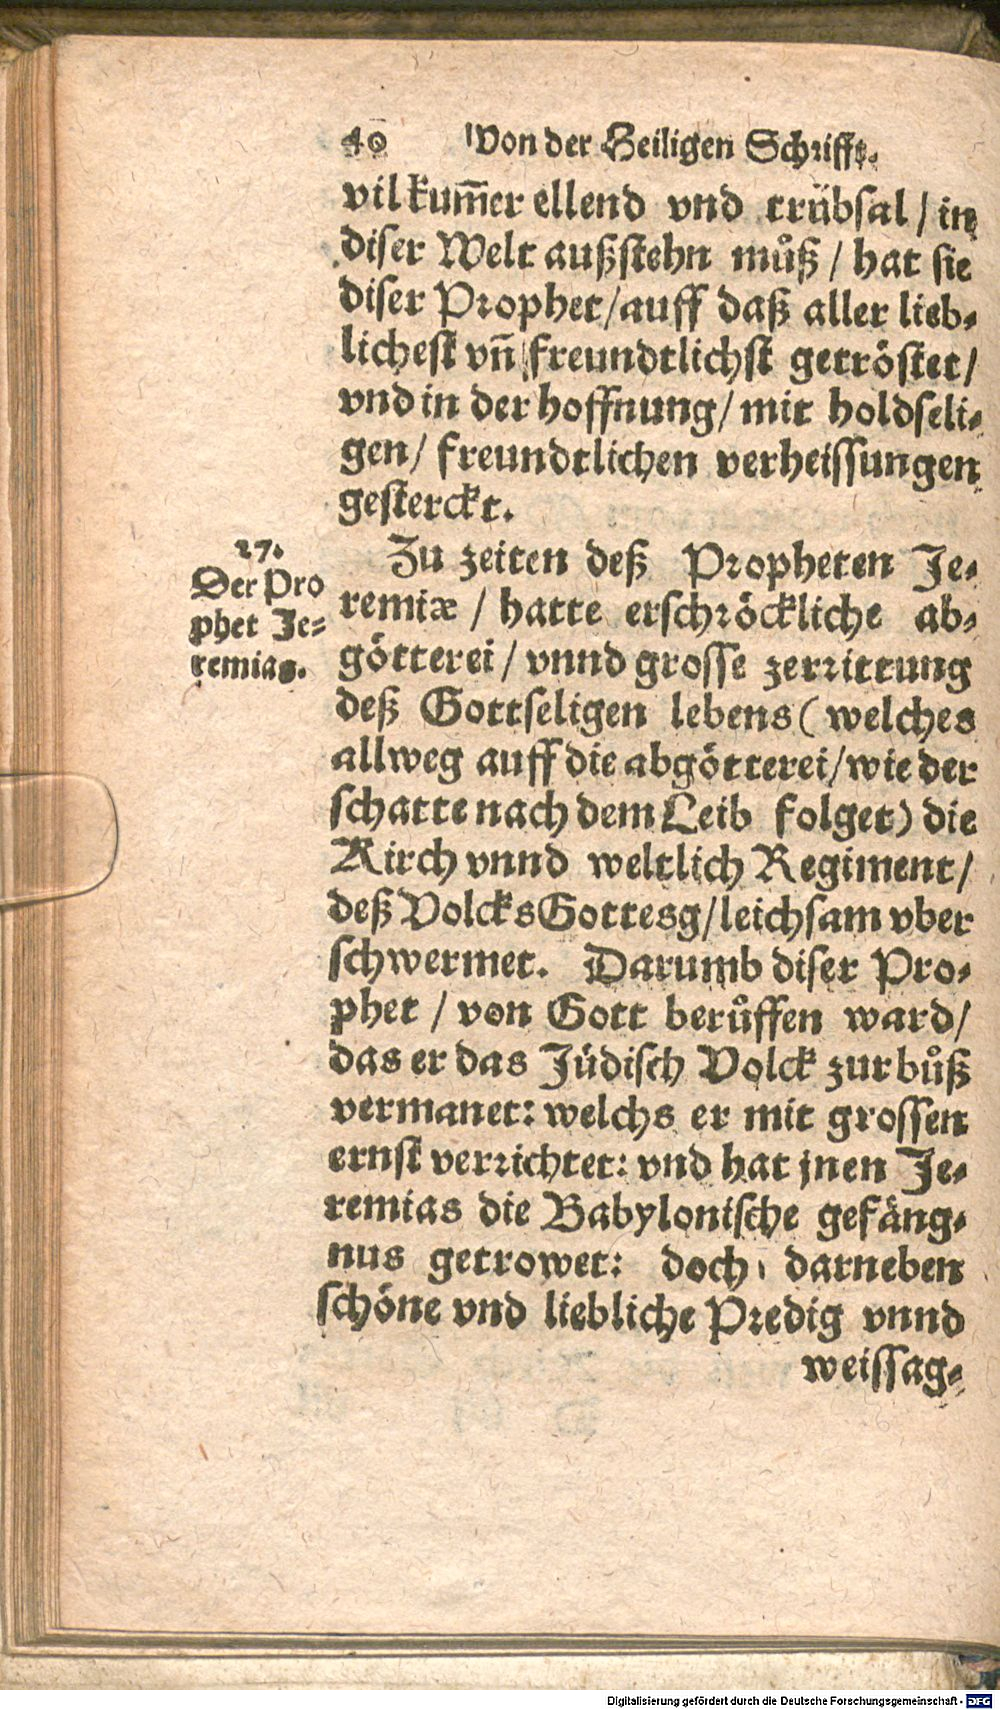 40 Von der Heiligen Schrifft.
vil kum̄er ellend vnd trübsal / in
diser Welt außstehn můß / hat sie
diser Prophet / auff daß aller lieb-
lichest vn̄ freundtlichst getröstet /
vnd in der hoffnung / mit holdseli-
gen / freundtlichen verheissungen
gesterckt.
27.
Der Pro
phet Je-
remias.
Zu zeiten deß Propheten Je-
remiæ / hatte erschröckliche ab-
götterei / vnnd grosse zerrittung
deß Gottseligen lebens ( welches
allweg auff die abgötterei / wie der
schatte nach dem Leib folget) die
Kirch vnnd weltlich Regiment /
deß Volcks Gottesg / leichsam vber
schwermet. Darumb diser Pro-
phet / von Gott berůffen ward /
das er das Jüdisch Volck zur bůß
vermanet: welchs er mit grossen
ernst verrichtet: vnd hat jnen Je-
remias die Babylonische gefäng-
nus getrowet: doch darneben
schöne vnd liebliche Predig vnnd
weissag-
Digitalisierung gefördert durch die Deutsche Forschungsgemeinschaft - DFG